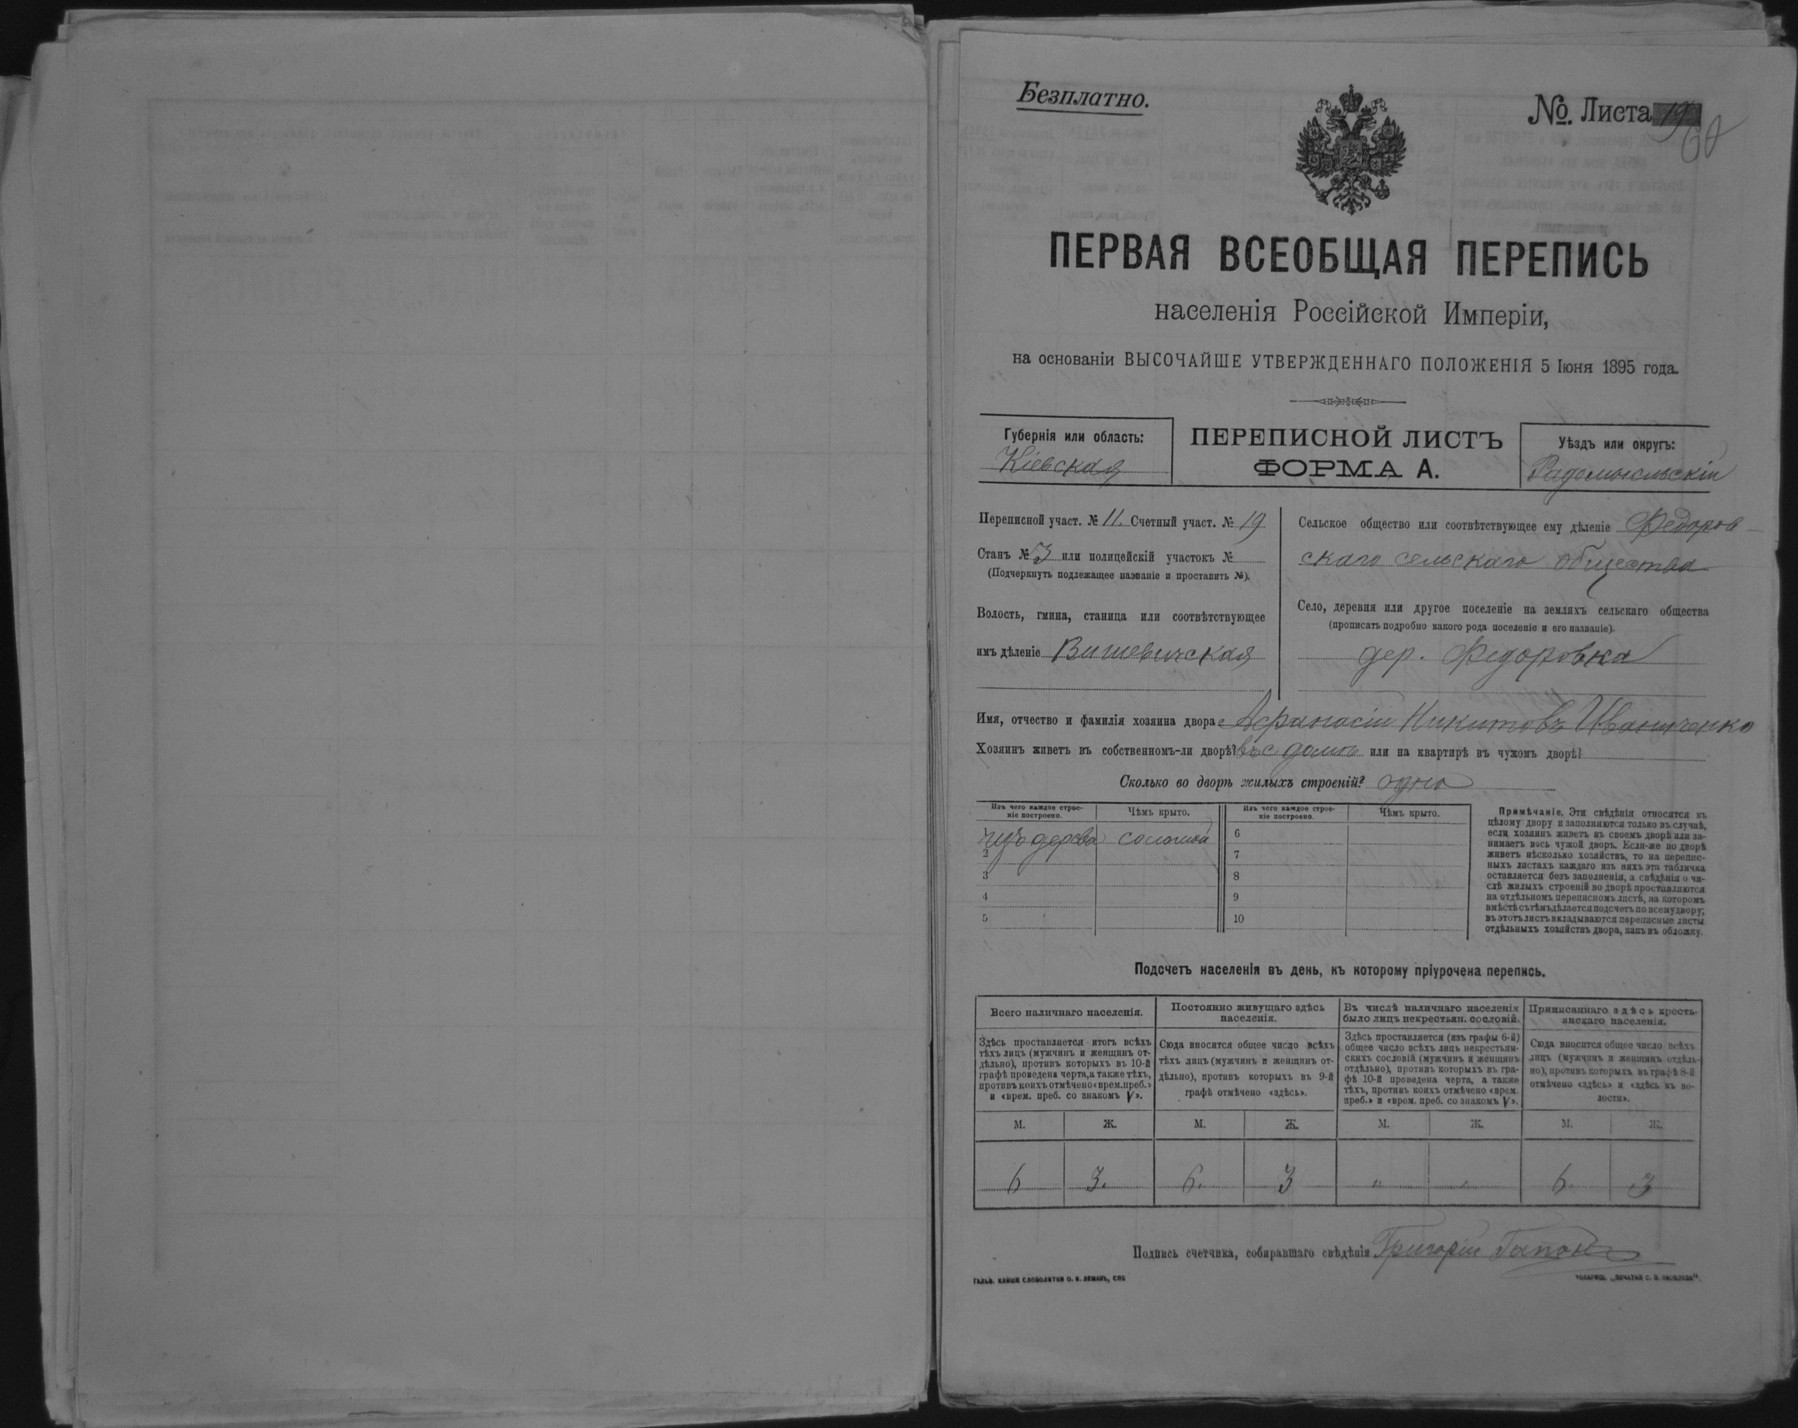 Безплатно.
№. Листа 19
60
ПЕРВАЯ ВСЕОБЩАЯ ПЕРЕПИСЬ
населенія Россійской Имперіи,
на основаніи ВЫСОЧАЙШЕ УТВЕРЖДЕННАГО ПОЛОЖЕНІЯ 5 Іюня 1895 года.
Губернія или область:
Кіевская
ПЕРЕПИСНОЙ ЛИСТЪ
ФОРМА А.
Уѣздъ или округъ:
Радомысльскій
Переписной участ. № 11. Счетный участ. № 19
Станъ № 3 или полицейскій участокъ №
(Подчеркнуть подлежащее названіе и проставить №).
Волость, гмина, станица или соотвѣтствующее
имъ дѣленіе Вишевичская
Сельское общество или соотвѣтствующее ему дѣленіе Федоров-
скаго сельскаго общества
Село, деревня или другое поселеніе на земляхъ сельскаго общества
(прописать подробно какого рода поселеніе и его названіе).
дер. Федоровка
Имя, отчество и фамилія хозяина двора Афанасій Никитовъ Иванченко
Хозяинъ живетъ въ собственномъ-ли дворѣ? въ с домѣ или на квартирѣ въ чужомъ дворѣ?
Сколько во дворѣ жилыхъ строеній? одно
Изъ чего каждое строе-
ніе построено.
Чѣмъ крыто.
Изъ чего каждое строе-
ніе построено.
Чѣмъ крыто.
изъ дерева соломой
2
3
4
5
6
7
8
9
10
Примѣчаніе. Эти свѣдѣнія относятся къ
цѣлому двору и заполняются только въ случаѣ,
если хозяинъ живетъ въ своемъ дворѣ или за-
нимаетъ весь чужой дворъ. Если-же во дворѣ
живетъ нѣсколько хозяйствъ, то на перепис-
ныхъ листахъ каждаго изъ нихъ эта табличка
оставляется безъ заполненія, а свѣдѣнія о чи-
слѣ жилыхъ строеній во дворѣ проставляются
на отдѣльномъ переписномъ листѣ, на которомъ
вмѣстѣ съ тѣмъ дѣлается подсчетъ по всему двору;
въ этотъ листъ вкладываются переписные листы
отдѣльныхъ хозяйствъ двора, какъ въ обложку.
Подсчетъ населенія въ день, къ которому пріурочена перепись.
Всего наличнаго населенія.
Здѣсь проставляется итогъ всѣхъ
тѣхъ лицъ (мужчинъ и женщинъ от-
дѣльно), противъ которыхъ въ 10-й
графѣ проведена черта, а также тѣхъ,
противъ коихъ отмѣчено «врем. преб.»
и «врем. преб. со знакомъ V».
Постоянно живущаго здѣсь
населенія.
Сюда вносится общее число всѣхъ
тѣхъ лицъ (мужчинъ и женщинъ от-
дѣльно), противъ которыхъ въ 9-й
графѣ отмѣчено «здѣсь».
Въ числѣ наличнаго населенія
было лицъ некрестьян. сословій.
Здѣсь проставляется (изъ графы 6-й)
общее число всѣхъ лицъ некрестьян-
скихъ сословій (мужчинъ и женщинъ
отдѣльно), противъ которыхъ въ гра-
фѣ 10-й проведена черта, а также
тѣхъ, противъ коихъ отмѣчено «врем.
преб.» и «врем. преб. со знакомъ V».
Приписаннаго здѣсь кресть-
янскаго населенія.
Сюда вносится общее число всѣхъ
лицъ (мужчинъ и женщинъ отдѣль-
но), противъ которыхъ въ графѣ 8-й
отмѣчено «здѣсь» и «здѣсь къ во-
лости».
М. Ж. М. Ж. М. Ж. М. Ж.
6 3. 6. 3 " " 6. 3
Подпись счетчика, собиравшаго свѣдѣнія Григорій Гапон